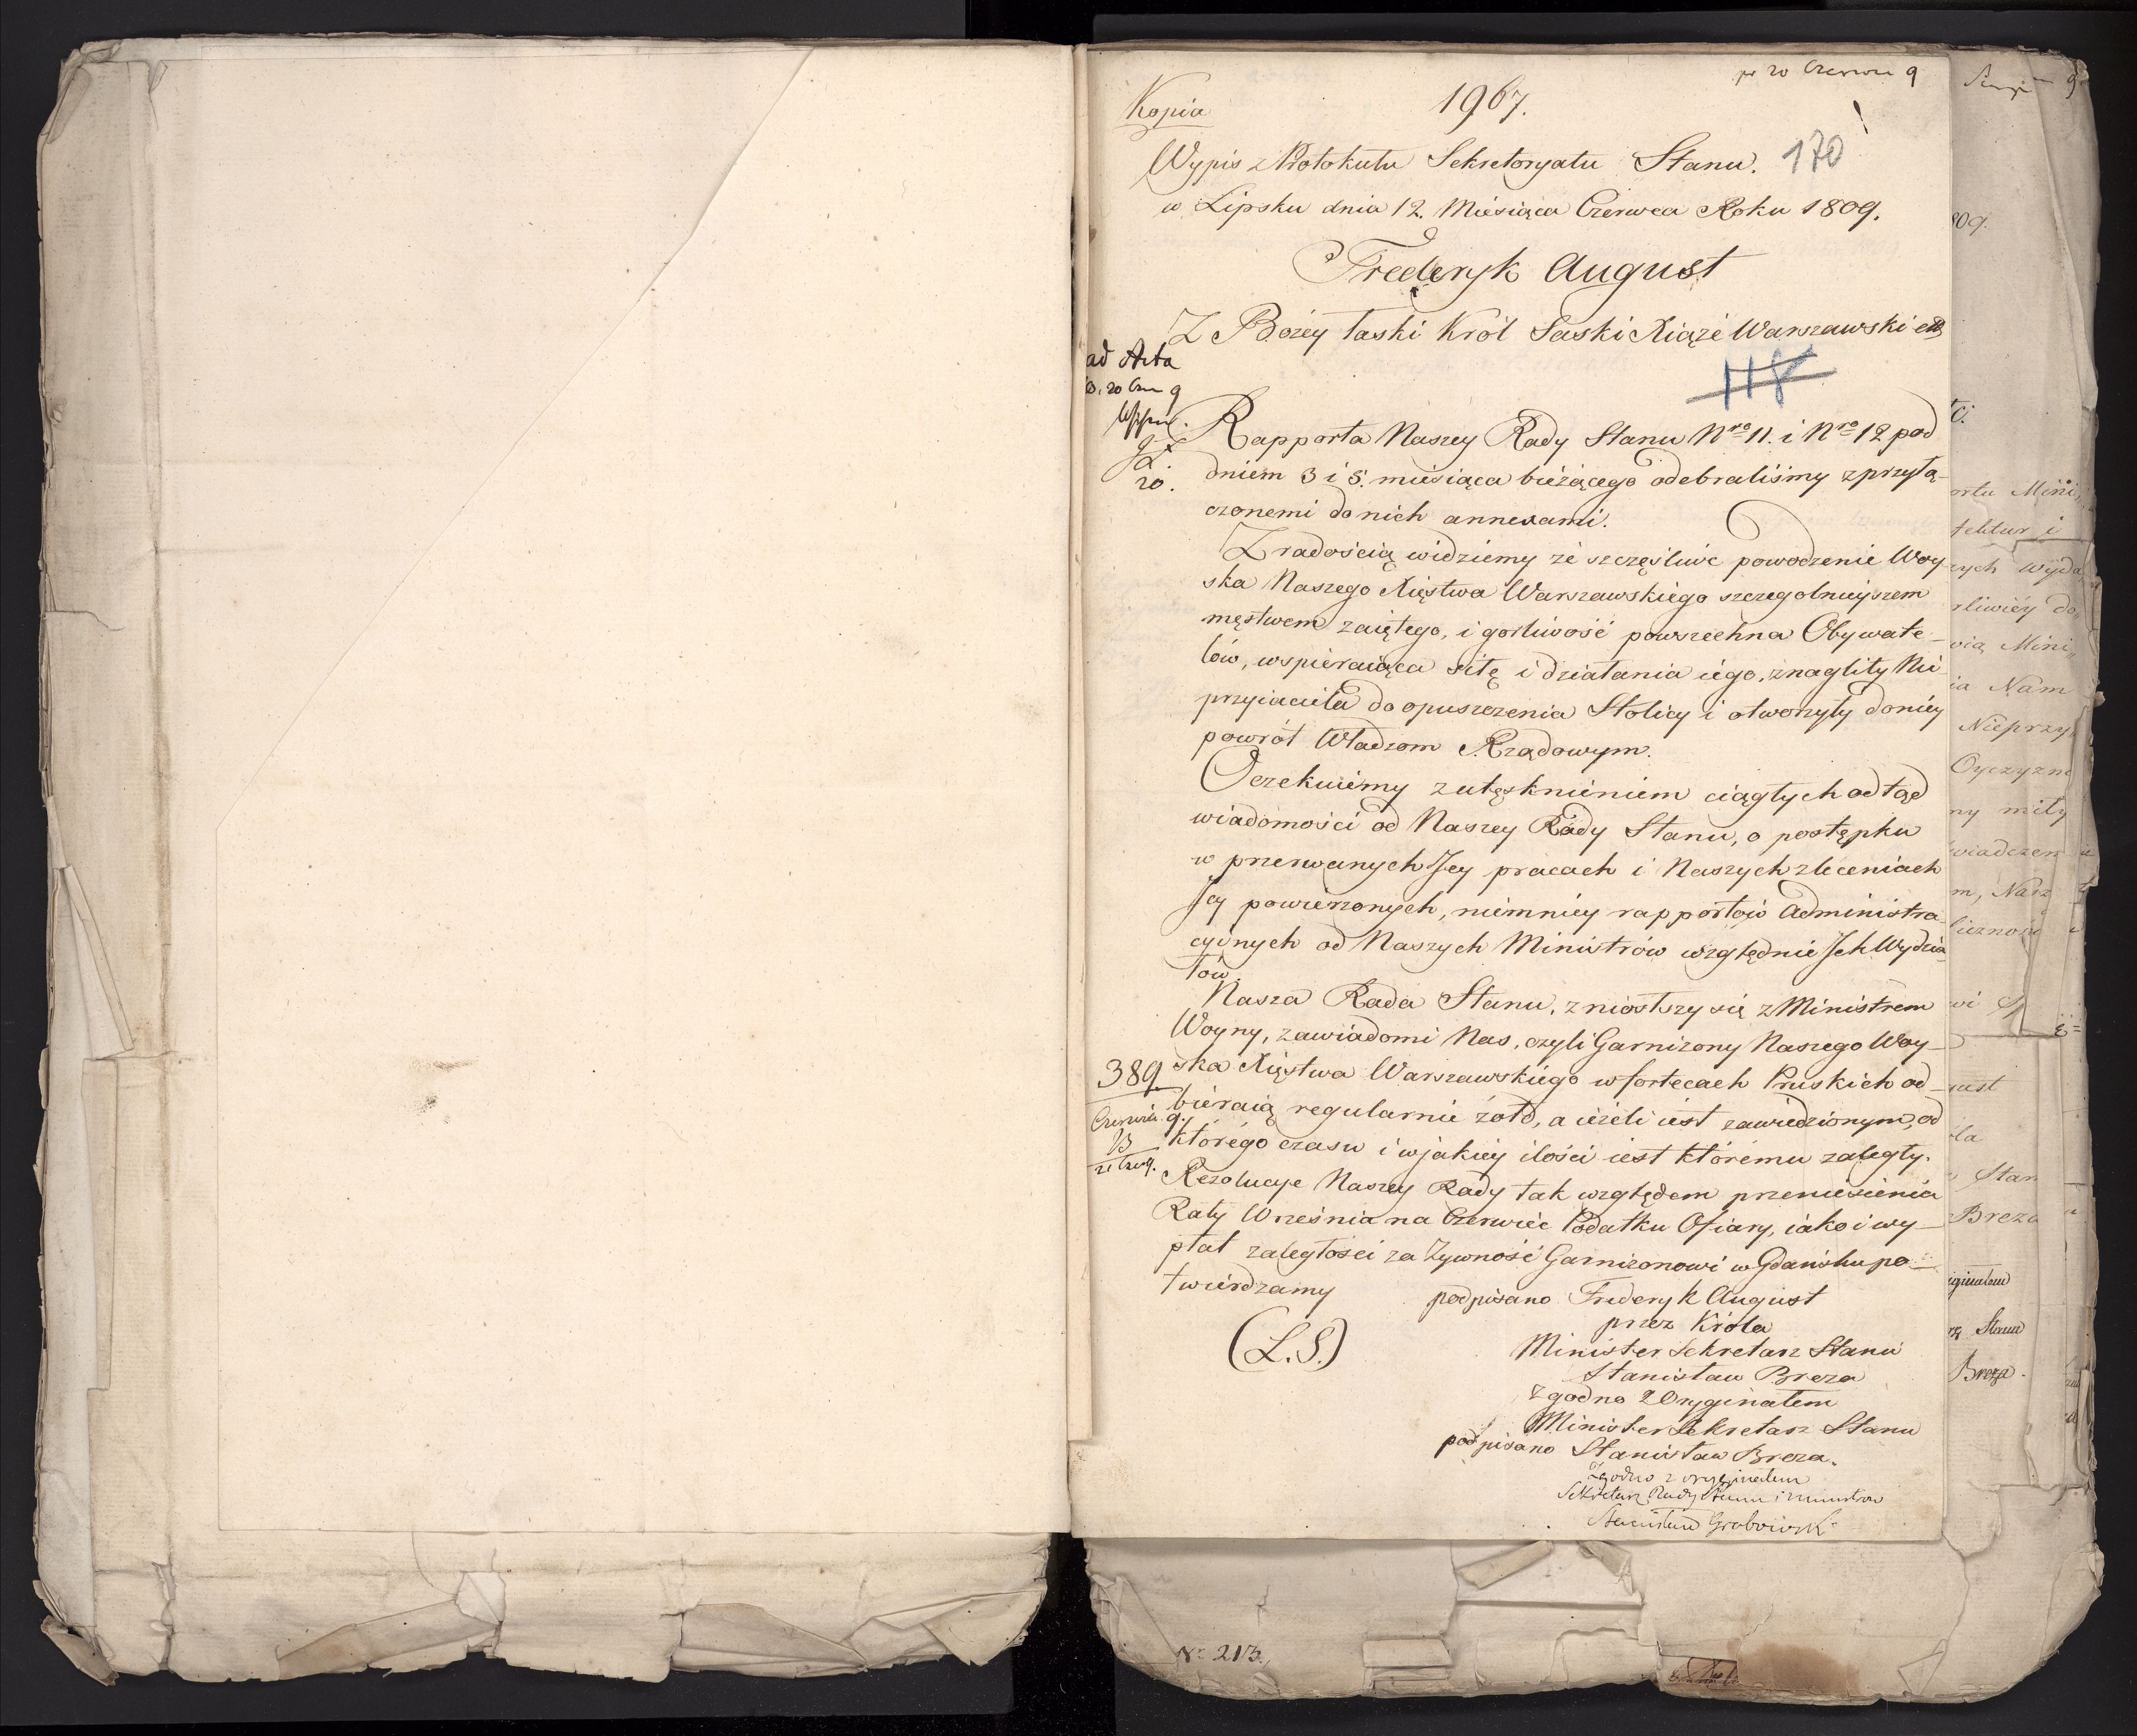 pr 20 Czerwca 9
Kopia
1967.
170
Wypis z Protokułu Sekretoryatu Stanu.
w Lipsku dnia 12. Miesiąca Czerwca Roku 1809.
Frederyk August
Z Bożey łaski Król Saski Xiąże Warszawski etc
ad Acta
118
Rapporta Naszey Rady Stanu Nro 11. i Nro 12 pod
dniem 3 i 5. miesiąca bieżącego odebraliśmy z przyłą-
czonemi do nich annexami.
20.
Z radością widziemy że szczęśliwe powodzenie Woy-
ska Naszego Xięstwa Warszawskiego szczegolnieyszem
męstwem zaiętego, i gorliwość powszechna Obywate-
lów, wspieraiąca siłę i działania iego, znagliły Nie-
przyiaciela do opuszczenia Stolicy i otworzyły do niéy
powrót Władzom Rządowym.
Oczekuiemy z utęsknieniem ciągłych odtąd
wiadomości od Naszey Rady Stanu, o postępku
w przerwanych Jey pracach i Naszych zleceniach
Jey powierzonych, niemniéy rapportów Administra-
cyinych od Naszych Ministrów względnie Ich Wydzia-
łów.
Nasza Rada Stanu, zniosłszy się z Ministrem
Woyny, zawiadomi Nas, czyli Garnizony Naszego Woy-
ska Xięstwa Warszawskiego w fortecach Pruskich od-
bieraią regularnie żołd, a ieżeli iest zawiedzionym, od
którego czasu i w jakiey ilości iest któremu zaległy.
389
Czerwca 9.
21 Czerw.
Rezolucye Naszey Rady tak względem przeniesienia
Raty Września na Czerwiec Podatku Ofiary, iako i wy-
płat zaległości za Żywność Garnizonowi w Gdańsku po-
twierdzamy
podpisano Frederyk August
przez Króla
(L.S.)
Minister Sekretarz Stanu
Stanisław Breza
Zgodno z Oryginałem
Minister Sekretarz Stanu
podpisano Stanisław Breza.
Zgodno z oryginałem
Sekretarz Rady Stanu i Ministrów
Stanisław Grabowski
809.
ortu Mini„
fektur i
rych Wyda„
rliwiéy do„
wią Mini„
ia Nam
Nieprzy„
Oyczyzn
ny miły
wiadczen
m, Nasz
licznoś
Stan
Breza
Stanu
Breza.
Nr 213.